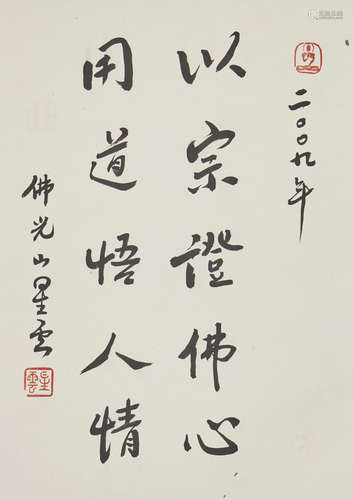 二〇〇九年
以宗證佛心
用道悟人情
佛光山星雲
星雲